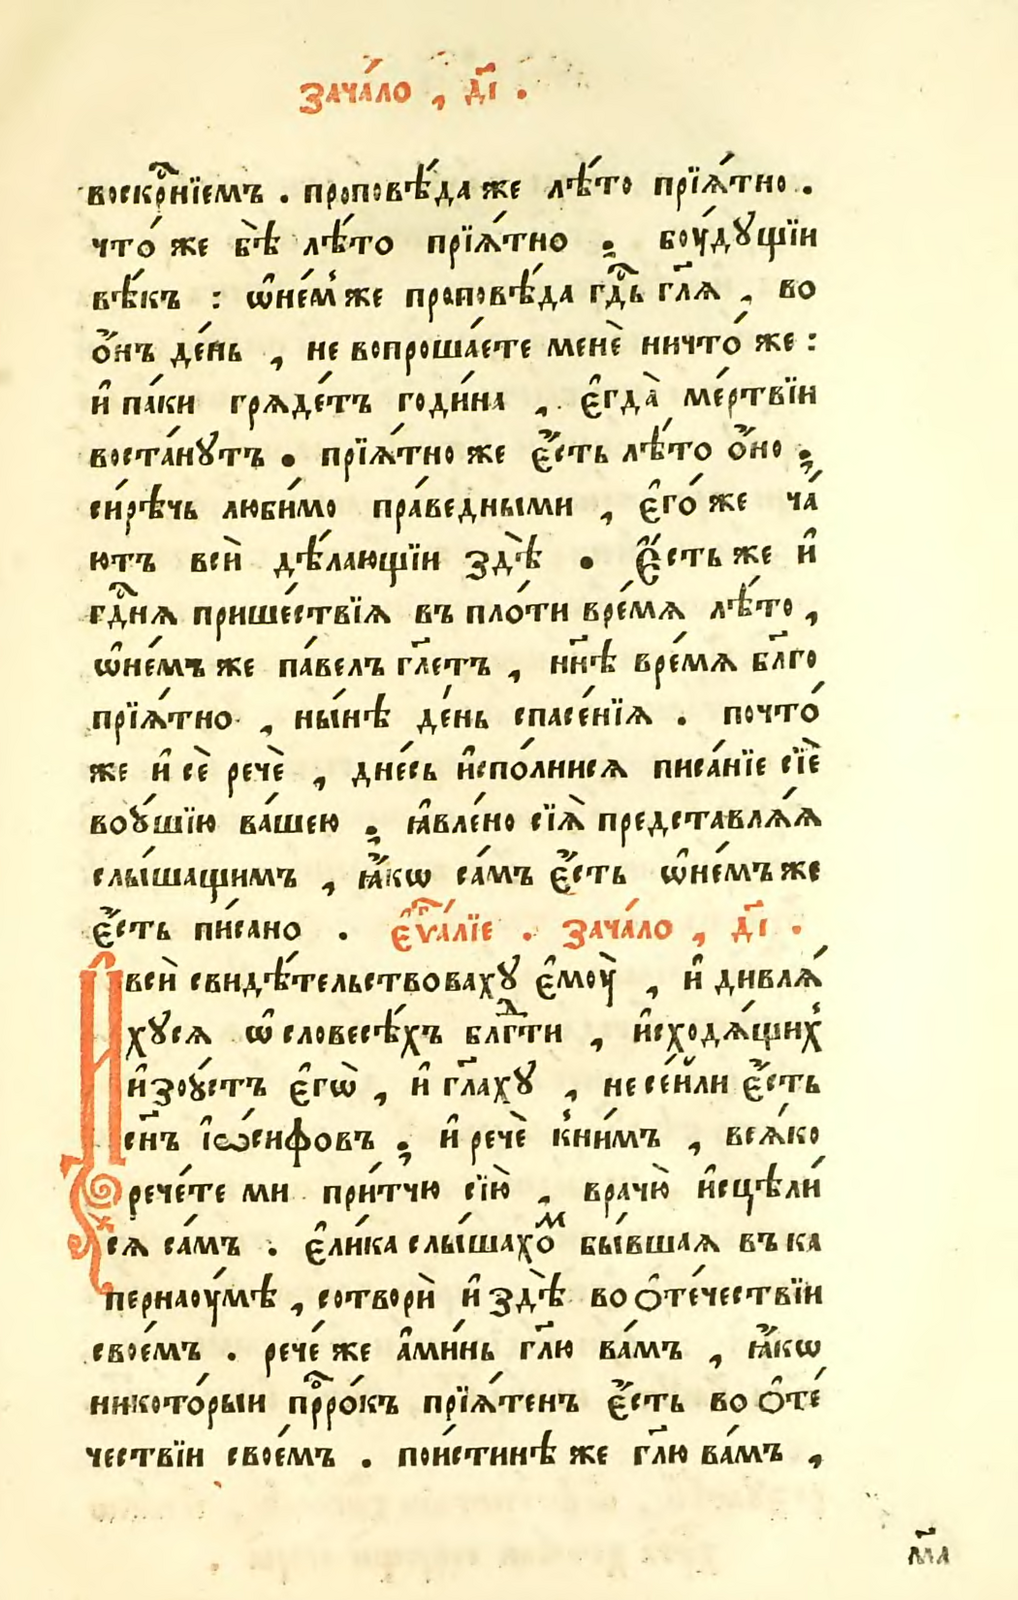 Зача́ло , д҃і .
воскрⷭ҇нїемъ . проповѣ́да же лѣ́то прїѧ́тно .
что́ же бѣ̀ лѣ́то прїѧ́тно ; боꙋ́дꙋщїи
вѣ́къ : ѡ҆не́мже проповѣ́да гдⷭ҇ь гл҃ѧ , во
ѻ҆́нъ де́нь , не вопроша́ете менѐ ничто́ же :
и҆ па́ки грѧде́тъ годи́на , є҆гда̀ ме́ртвїи
воста́нꙋтъ . прїѧ́тно же є҆́сть лѣ́то ѻ҆́но ;
си́рѣчь люби́мо пра́ведными , є҆го́ же ча́
ютъ всѝ дѣ́лающїи здѣ̀ . є҆́сть же и҆
гдⷭ҇нѧ прише́ствїѧ въ пло́ти вре́мѧ лѣ́то ,
ѡ҆не́мъ же па́велъ гл҃етъ , нн҃ѣ вре́мѧ бл҃го
прїѧ́тно , ны́нѣ де́нь спасе́нїѧ . почто́
же и҆ сѐ речѐ , дне́сь и҆спо́лнисѧ писа́нїе сїѐ
воꙋ́шїю ва́шею ; ꙗ҆вле́но сїѧ̀ представлѧ́ѧ
слы́шащимъ , ꙗ҆́кѡ са́мъ є҆́сть ѡ҆не́мъ же
є҆́сть пи́сано . є҆ѵⷢ҇а́лїе . зача́ло , д҃і .
И҆ всѝ свидѣ́тельствовахꙋ є҆моꙋ̀ , и҆ дивлѧ́
хꙋсѧ ѡ҆ словесѣ́хъ блгⷣ҇ти , и҆сходѧ́щих
и҆зоꙋ́стъ є҆гѡ̀ , и҆ гл҃ахꙋ , не се́йли є҆́сть
сн҃ъ і҆ѡ́сифовъ ; и҆ речѐ кни́мъ , всѧ́ко
рече́те ми при́тчю сїю̀ , врачю̀ и҆сцѣли́
сѧ са́мъ . є҆ли́ка слы́шахоⷨ бы́вшаѧ въ ка
пернаоꙋ́мѣ , сотворѝ и҆ здѣ̀ во ѻ҆те́чествїи
свое́мъ . рече́ же а҆ми́нь гл҃ю ва́мъ , ꙗ҆́кѡ
никото́рыи прⷪ҇ро́къ прїѧ́тенъ є҆́сть во ѻ҆те́
чествїи свое́мъ . пои́стинѣ же гл҃ю ва́мъ ,
м҃а